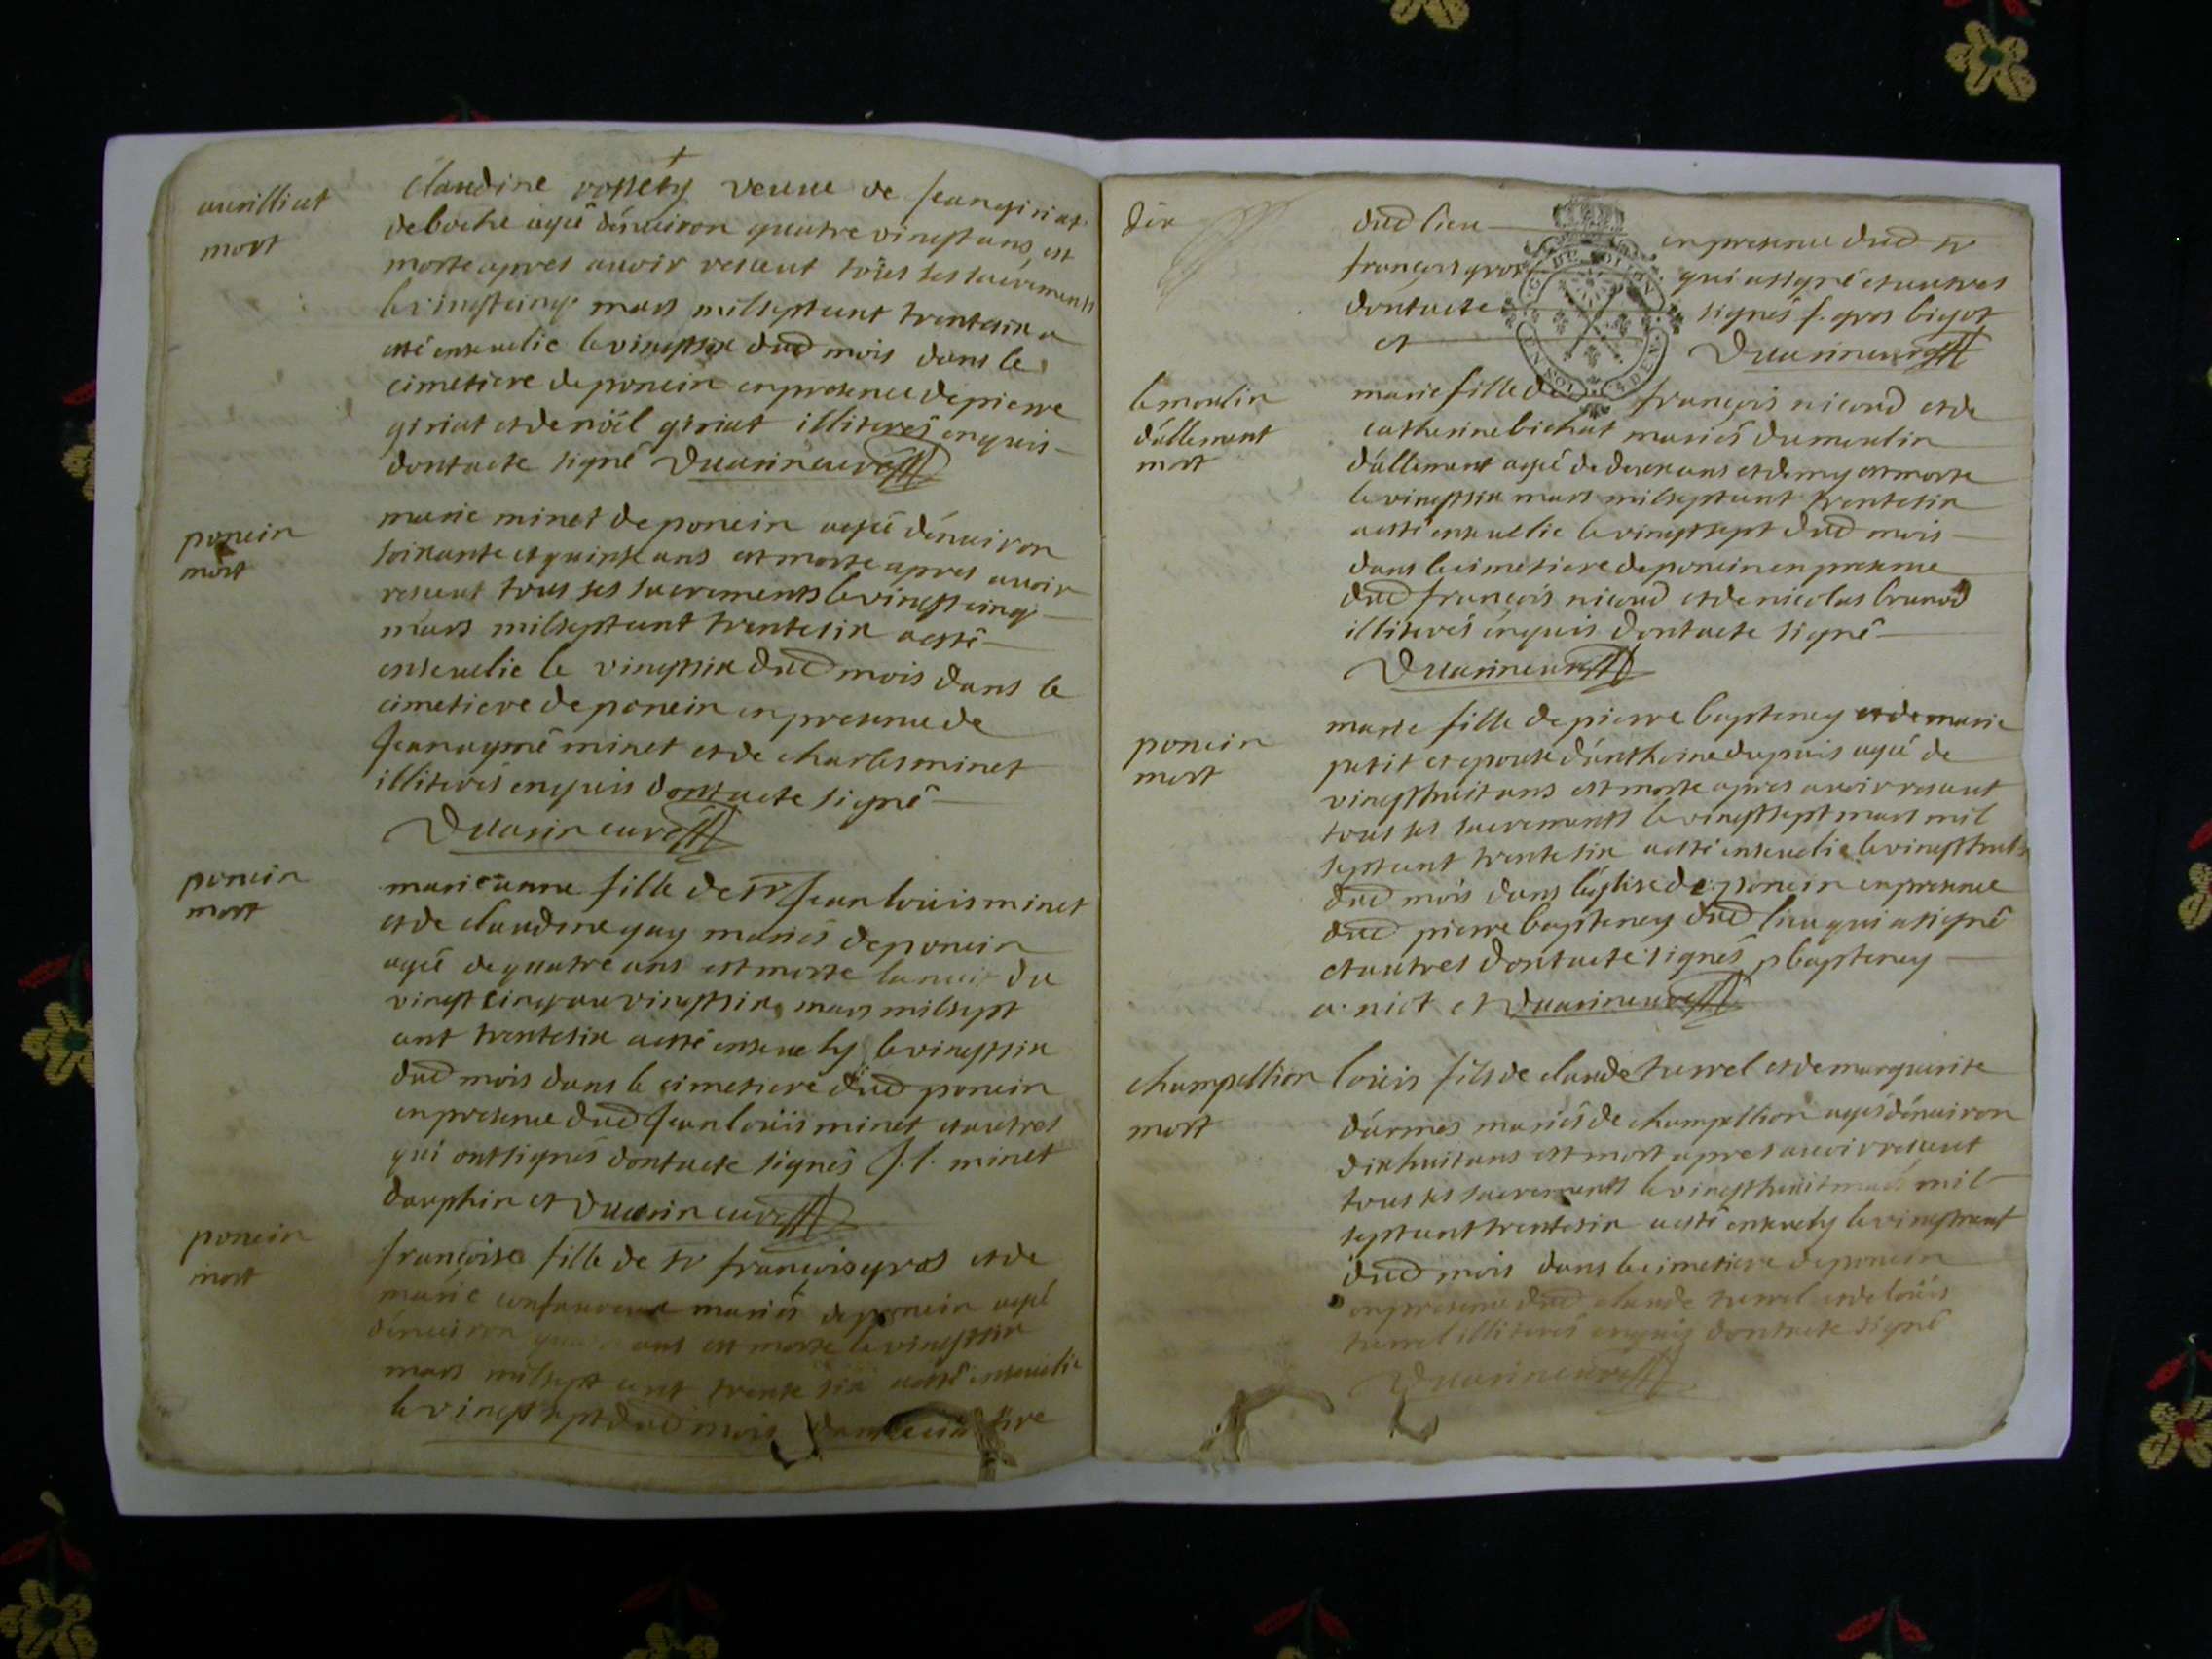 aurilliat
mort
claudine veuve de Jean giriat
deboche agée dénuiron quatre vingt ans, est
morte apres auoir resceut toûs ses sacrements
le vingtcinq mars milseptcent trentesix a
esté enseuelie le vingtsix dud mois dans le
cimetiere deponcin enpresence depierre
giriat etdenöel giriat illiterés enquis
dontacte signé Duarin curé
poncin
mort
marie minet deponcin agée dénuiron
soixante etquinse ans est morte apres auoir
resceut tous ses sacrements le vingtcinq
mars milseptcent trentesix aesté
enseuelie le vingtsix dud mois dans le
cimetiere deponcin enpresence de
Jeanaymé minet etde charles minet
illiterés enquis dontacte signé
Duarin curé
poncin
mort
marieanne fille de sr Jean loüis minet
etde claudine guy mariés deponcin
agée dequatre ans est morte lanuit du
vingtcinq au vingtsix mars milsept
cent trentesix aesté enseuely le vingtsix
dud mois dans le cimetiere dud poncin
enpresence dud Jean loüis minet etautres
qui ontsignés dontacte signés J. l. minet
dauphin et Duarin curé
poncin
mort
françoise fille de sr françois gros etde
marie mariés deponcin agée
dénuiron ans est morte le vingtsix
mars milsept cent trente six aesté enseuelie
le vingtsept dud mois dans le cimetiere
dix
dud lieu enpresence dud sr
françois gros qui asigné etautres
dontacte signés f. gros bigot
et Duarin curé
le moulin
dállement
mort
marie fille de françois nicoud etde
catherine bichat mariés dumoulin
dállement agée de deux ans etdemy estmorte
le vingtsix mars milseptcent trentesix
aesté enseuelie le vingtsept dud mois
dans le cimetiere deponcin enpresence
dud françois nicoud etde nicolas brunod
illiterés enquis dontacte signé
Duarin curé
poncin
mort
marie fille depierre bapteney etdemarie
petit et epouse dánthoine dupuis agée de
vingthuit ans est morte apres auoir resceut
tous ses sacrements le vingtsept mars mil
septcent trentesix aesté enseuelie le vingthuit
dud mois dans léglise de poncin enpresence
dud pierre bapteney dud lieu qui asigné
etautres dontacte signés p bapteney
a. niot et Duarin curé
champellion
mort
loüis fils de claude turrel etdemarguerite
dármes mariés de champellion agé dénuiron
dixhuit ans est mort apres auoir resceut
tous ses sacrements le vingthuit mars mil
septcent trentesix aesté enseuely le vingtneuf
dud mois dans le cimetiere deponcin
enpresence dud claude turrel etdeloüis
turrel illiterés enquis dontacte signé
Duarin curé